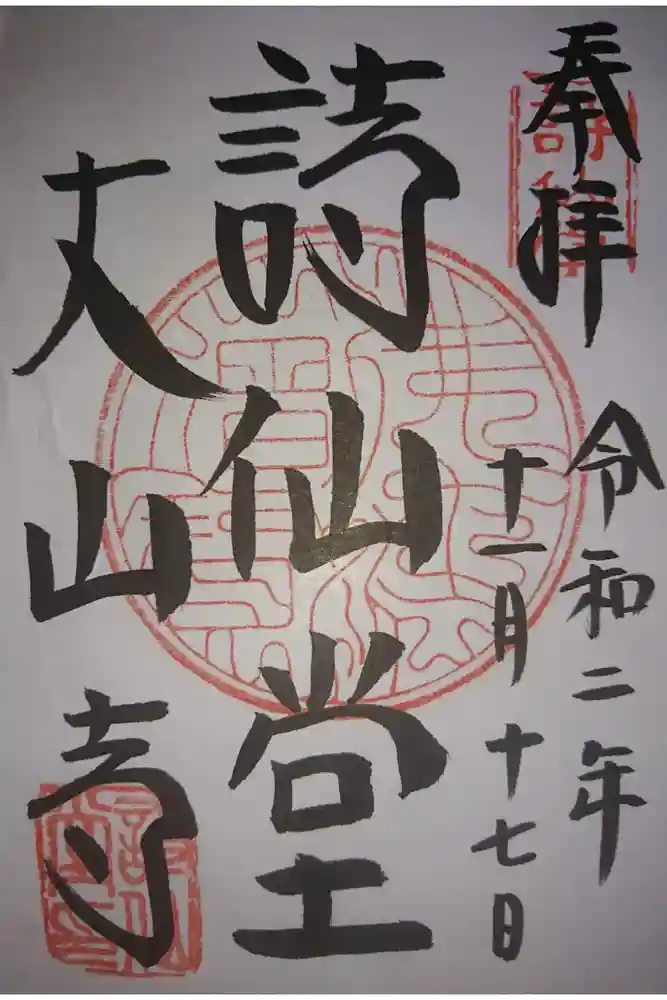 奉拝
令和二年
十一月十七日
詩仙堂
丈山寺